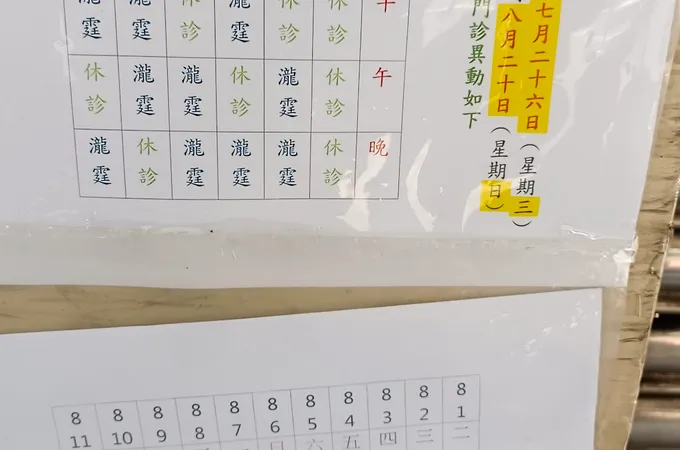 七月二十六日（星期三）
八月二十日（星期日）
門診異動如下
午 休診 休診 瀧霆 休診 瀧霆 瀧霆
午 休診 瀧霆 休診 瀧霆 瀧霆 休診
晚 休診 瀧霆 瀧霆 瀧霆 休診 瀧霆
8 8 8 8 8 8 8 8 8 8 8
11 10 9 8 7 6 5 4 3 2 1
日 六 五 四 三 二